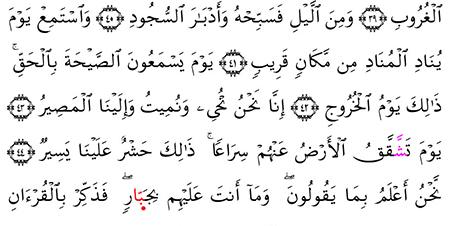 ٱلْغُرُوبِ ﴿٣٩﴾ وَمِنَ ٱلَّيْلِ فَسَبِّحْهُ وَأَدْبَـٰرَ ٱلسُّجُودِ ﴿٤٠﴾ وَٱسْتَمِعْ يَوْمَ
يُنَادِ ٱلْمُنَادِ مِن مَّكَانٍ قَرِيبٍ ﴿٤١﴾ يَوْمَ يَسْمَعُونَ ٱلصَّيْحَةَ بِٱلْحَقِّ ۚ
ذَٰلِكَ يَوْمُ ٱلْخُرُوجِ ﴿٤٢﴾ إِنَّا نَحْنُ نُحْىِۦ وَنُمِيتُ وَإِلَيْنَا ٱلْمَصِيرُ ﴿٤٣﴾
يَوْمَ تَشَقَّقُ ٱلْأَرْضُ عَنْهُمْ سِرَاعًا ۚ ذَٰلِكَ حَشْرٌ عَلَيْنَا يَسِيرٌ ﴿٤٤﴾
نَّحْنُ أَعْلَمُ بِمَا يَقُولُونَ ۖ وَمَآ أَنتَ عَلَيْهِم بِجَبَّارٍ ۖ فَذَكِّرْ بِٱلْقُرْءَانِ